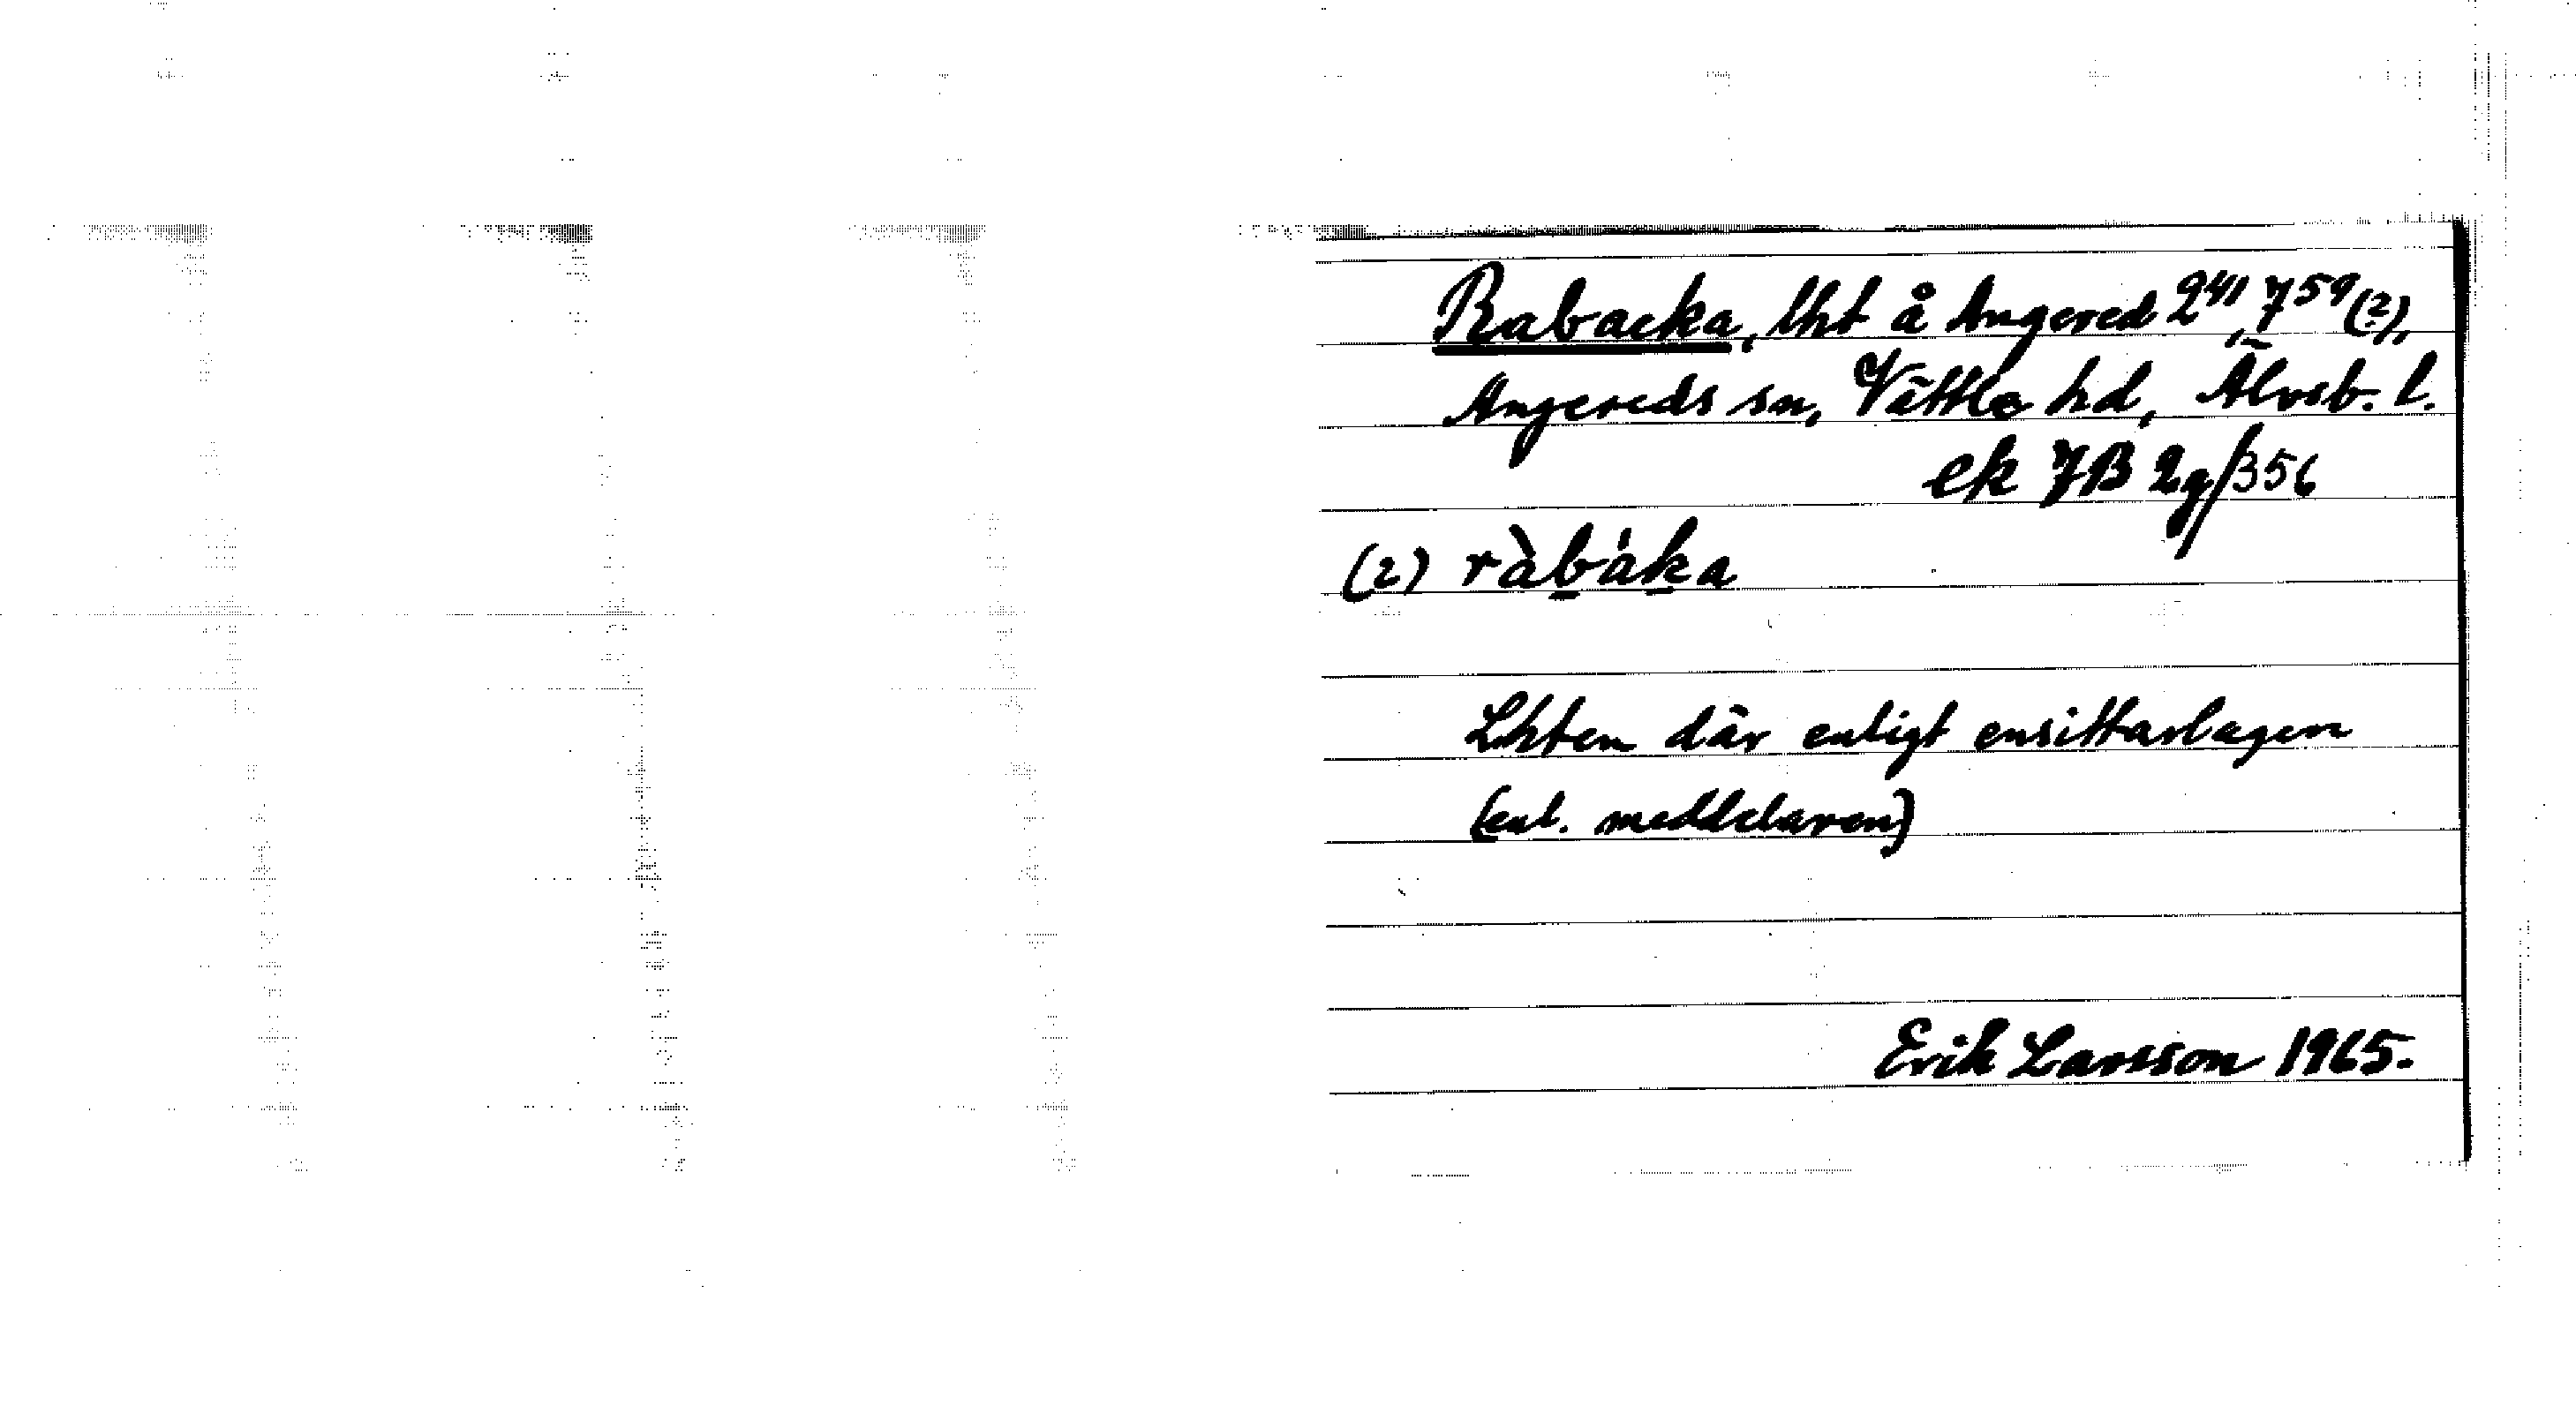 Rabacka, lht å Angered 2⁴¹, 7⁵⁹ (2),
Angereds sn, Vättle hd, Älvsb. l.
ek 7B 2g/356
(2) ràb̲ák̲a
Lhten där enligt ensittarlagen
(enl. meddelaren)
Erik Larsson 1965.